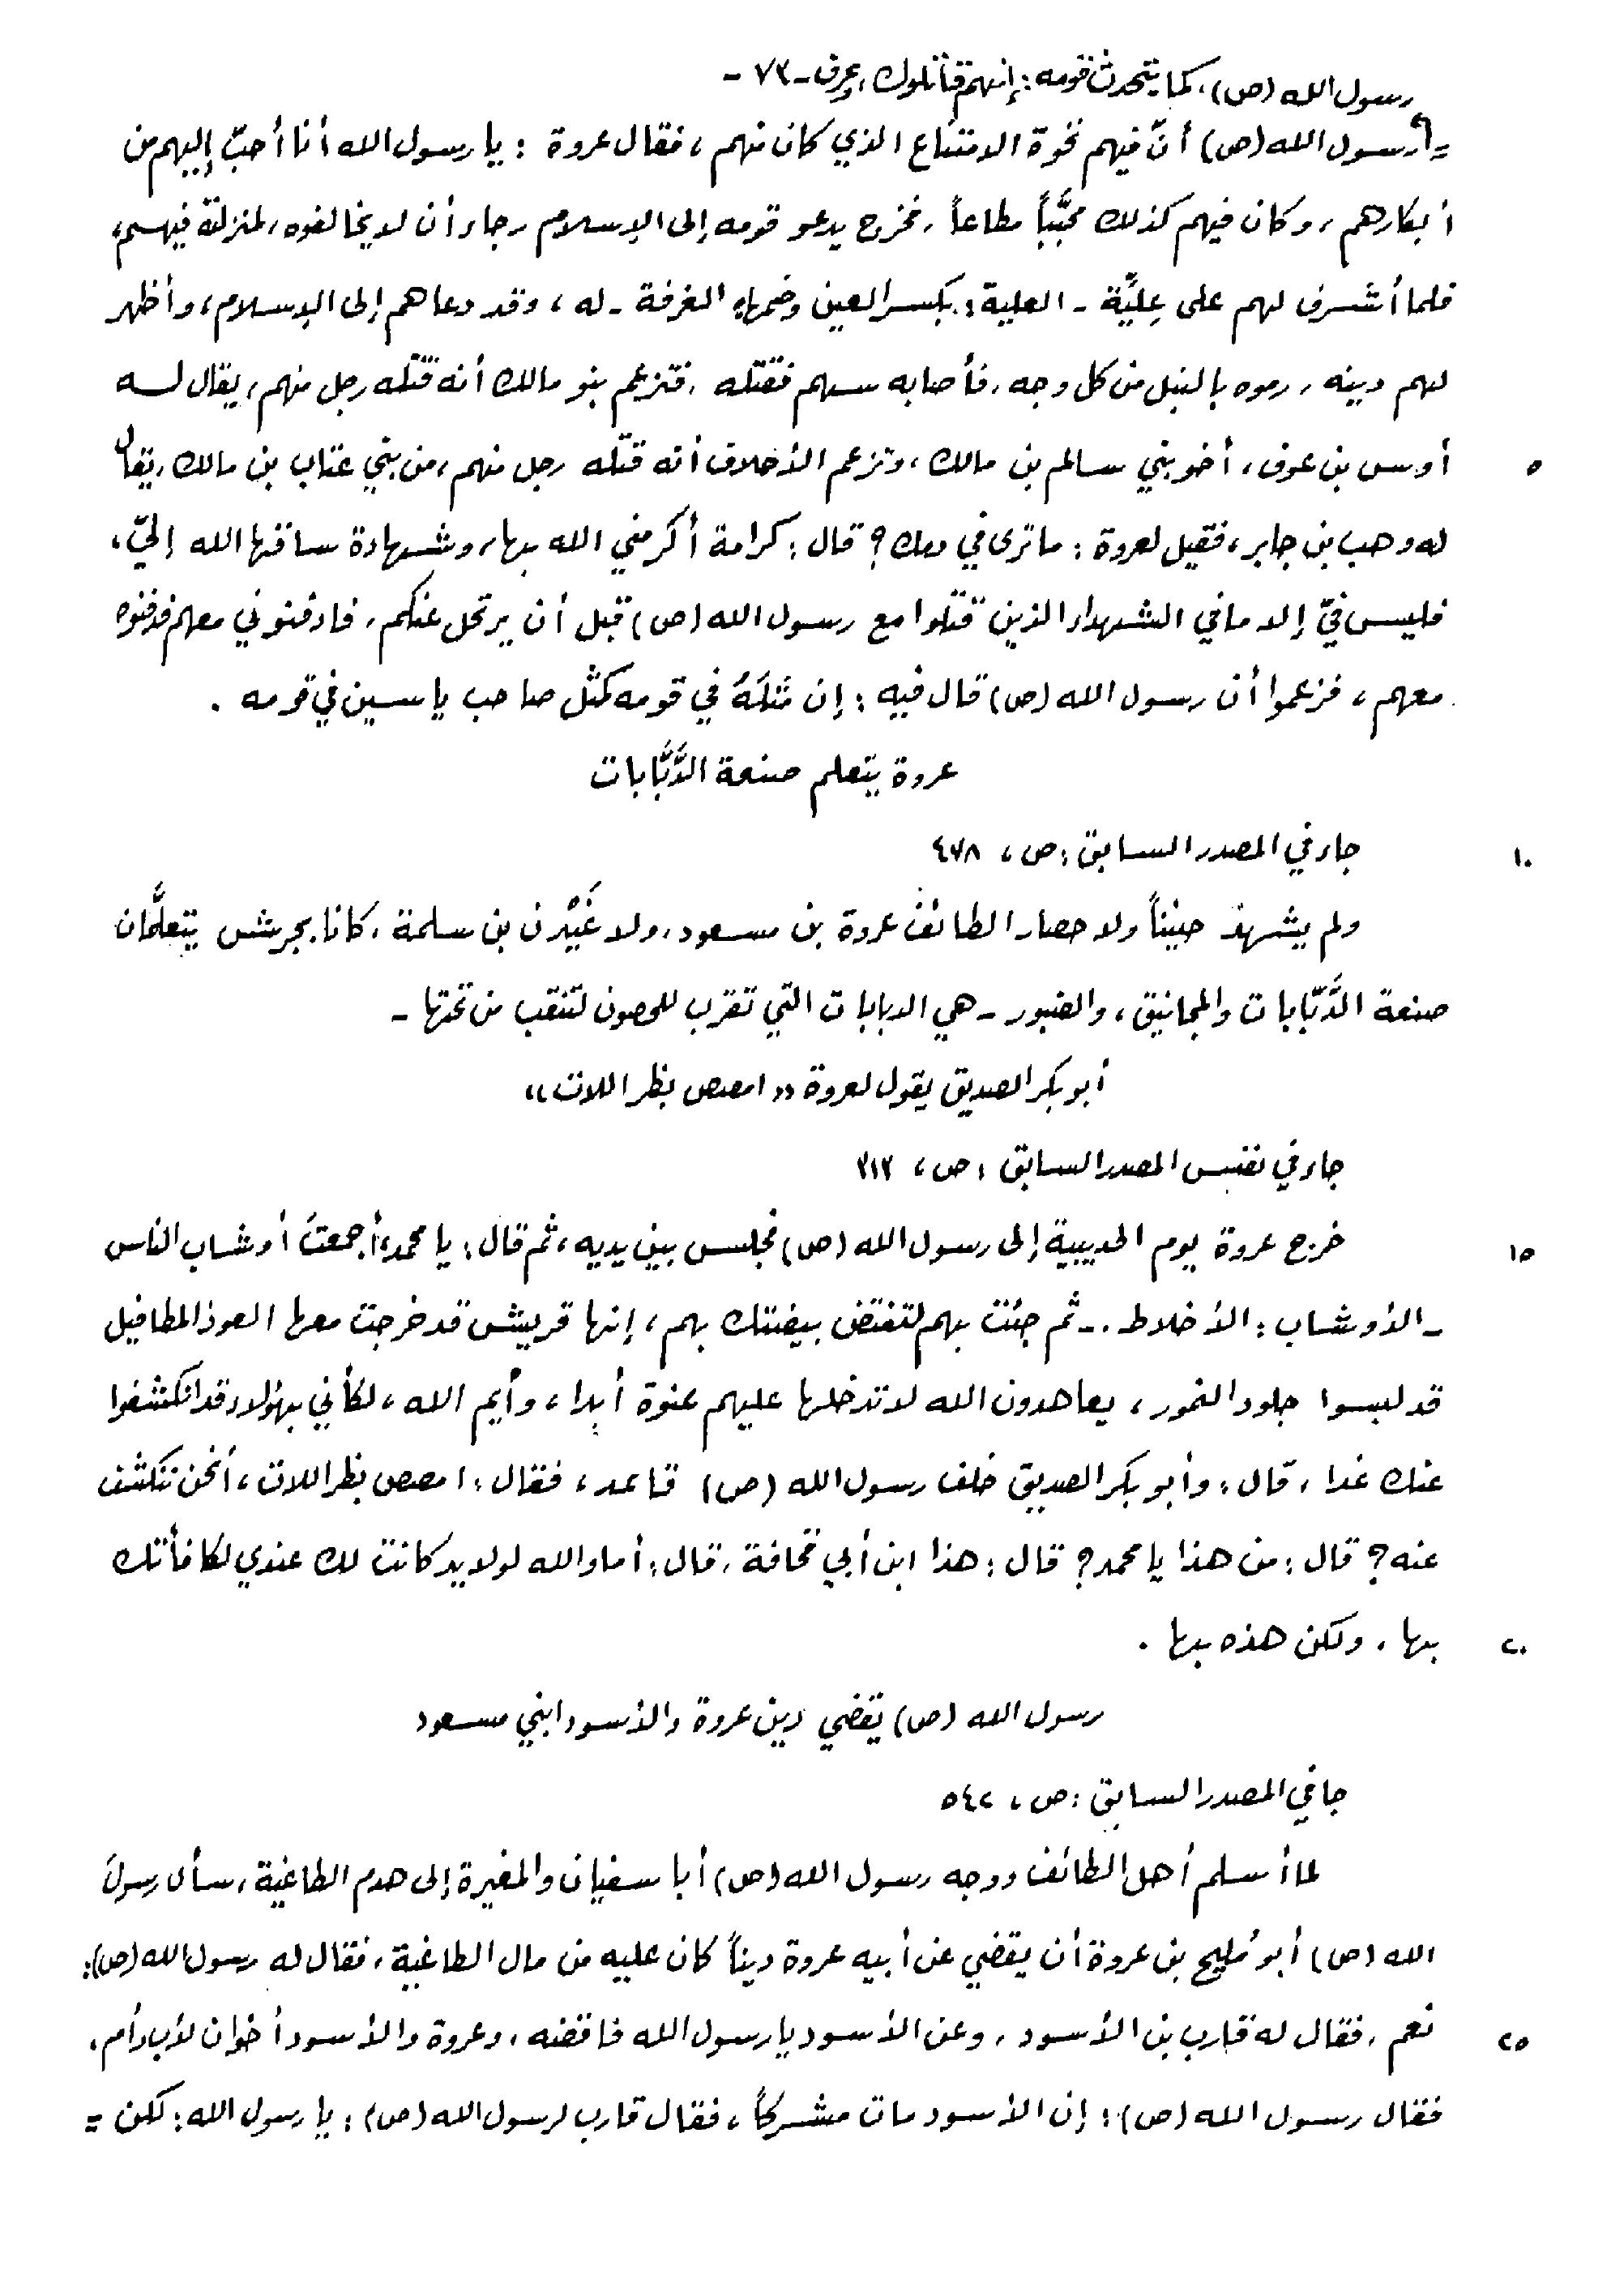 رسول الله (ص)، كما يتحدث قومه: إنهم قاتلوك، وعرف -٧٣-
= رسول الله (ص) أنّ فيهم نخوة الامتناع الذي كان منهم، فقال عروة: يا رسول الله أنا أحبّ إليهم من
أبكارهم، وكان فيهم كذلك محبَّباً مطاعاً، فخرج يدعو قومه إلى الإسلام رجاء أن لا يخالفوه، لمنزلته فيهم،
فلما أشرف لهم على عِليَّة - العلية: بكسر العين وضمها، الغرفة - له، وقد دعاهم إلى الإسلام، وأظهر
لهم دينه، رموه بالنبل من كل وجه، فأصابه سهم فقتله، فتزعم بنو مالك أنه قتله رجل منهم، يقال له
أوس بن عوف، أخو بني سالم بن مالك، وتزعم الأحلاف أنه قتله رجل منهم، من بني عتاب بن مالك، يقال
له وهب بن جابر، فقيل لعروة: ما ترى في دمك؟ قال: كرامة أكرمني الله بها، وشهادة ساقها الله إليّ،
فليس فيّ إلا ما في الشهداء الذين قتلوا مع رسول الله (ص) قبل أن يرتحل عنكم، فادفنوني معهم فدفنوه
معهم، فزعموا أن رسول الله (ص) قال فيه: إن مَثلَهُ في قومه كمثل صاحب ياسين في قومه.
عروة يتعلم صنعة الدَّبَّابات
جاء في المصدر السابق: ص، ٤٧٨
ولم يشهد حنيناً ولا حصار الطائف عروة بن مسعود، ولا غَيْلان بن سلمة، كانا بجرش يتعلَّمان
صنعة الدَّبّابات والمجانيق، والضبور - هي الدبابات التي تقرب للحصون لتنقب من تحتها -
أبو بكر الصديق يقول لعروة «امصص بظر اللات»
جاء في نفس المصدر السابق: ص، ٣١٣
خرج عروة يوم الحديبية إلى رسول الله (ص) فجلس بين يديه، ثم قال: يا محمد، أجمعتَ أوشاب الناس
- الأوشاب: الأخلاط. - ثم جئت بهم لتفتض بيضتك بهم، إنها قريش قد خرجت معها العوذ المطافيل
قد لبسوا جلود النمور، يعاهدون الله لا تدخلها عليهم عنوة أبدا، وأيم الله، لكأني بهؤلاء قد انكشفوا
عنك غدا، قال: وأبو بكر الصديق خلف رسول الله (ص) قاعد، فقال: امصص بظر اللات، أنحن ننكشف
عنه؟ قال: من هذا يا محمد؟ قال: هذا ابن أبي قحافة، قال: أما والله لولا يد كانت لك عندي لكافأتك
بها، ولكن هذه بها.
رسول الله (ص) يقضي دين عروة والأسود ابني مسعود
جا في المصدر السابق: ص، ٥٤٢
لما أسلم أهل الطائف ووجه رسول الله (ص) أبا سفيان والمغيرة إلى هدم الطاغية، سأل رسولَ
الله (ص) أبو مُليح بن عروة أن يقضي عن أبيه عروة ديناً كان عليه من مال الطاغية، فقال له رسول الله (ص):
نعم، فقال له قارب بن الأسود، وعن الأسود يا رسول الله فاقضه، وعروة والأسود أخوان لأب وأم،
فقال رسول الله (ص): إن الأسود مات مشركاً، فقال قارب لرسول الله (ص): يا رسول الله: لكن =
٥
١٠
١٥
٢٠
٢٥